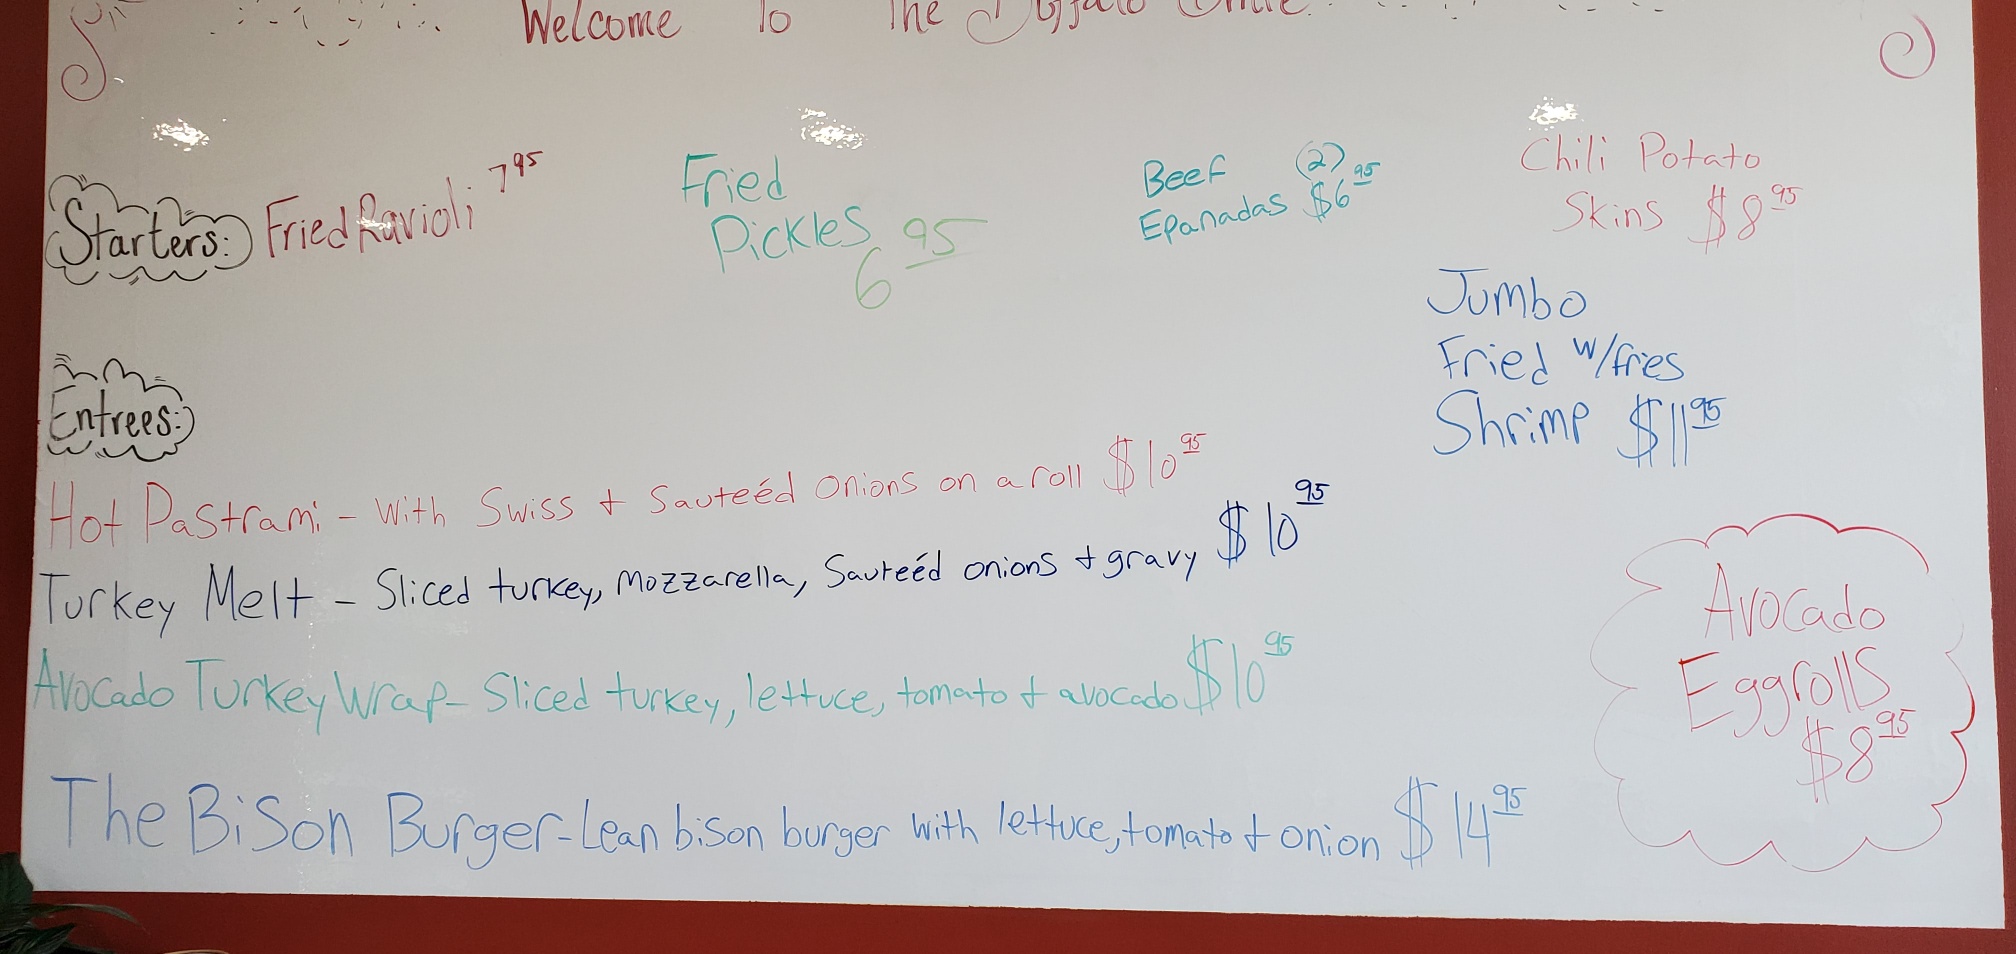 Welcome To The Buffalo
Starters: Fried Ravioli 7 95
Fried
Pickles 6 95
Beef (2)
Epanadas $6 95
Chili Potato
Skins $8 95
Jumbo
Fried w/fries
Shrimp $11 95
Entrees:
Hot Pastrami - With Swiss + Sauteéd Onions on a roll $10 95
Turkey Melt - Sliced turkey, Mozzarella, Sauteéd onions + gravy $10 95
Avocado Turkey Wrap - Sliced turkey, lettuce, tomato + avocado $10 95
The Bison Burger - Lean bison burger with lettuce, tomato + onion $14 95
Avocado
Eggrolls
$8 95